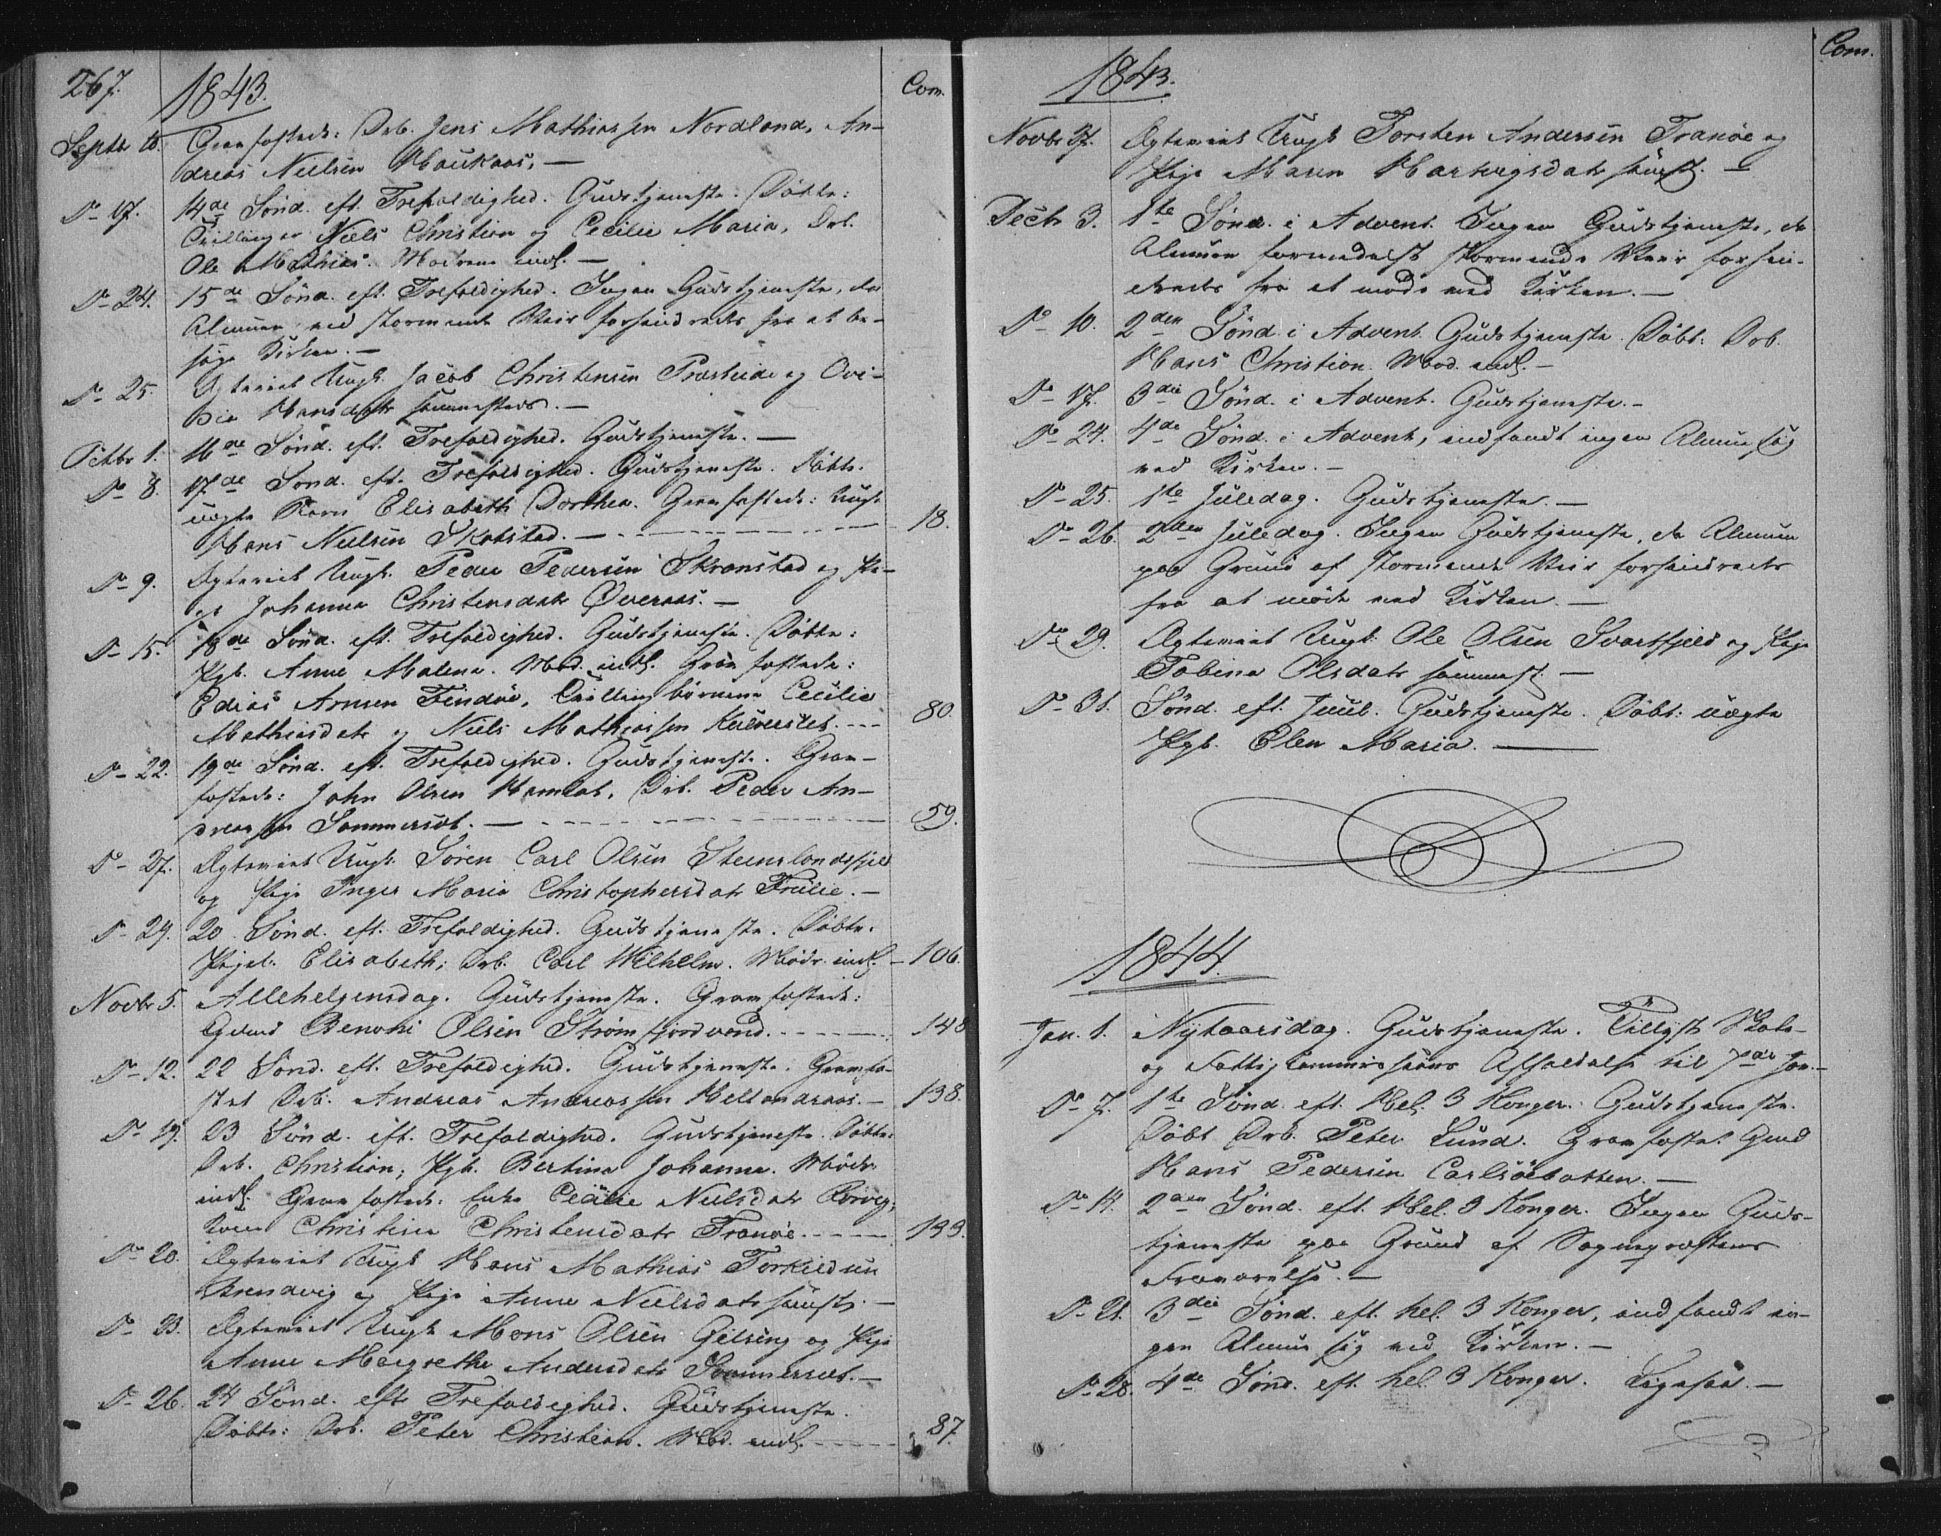 267. 1843. Com.
Septbr 10. Gravfæstede: Drb. Jens Mathiassen Nordland, An-
dreas Nielsen Haukaas. —
Do 17. 14de Sønd. eft. Trefoldighed. Gudstjeneste. Døbte:
Tvillinger Niels Christian og Cecilie Maria, Drb.
Ole Mathias. Mødrene indl. —
Do 24. 15de Sønd. eft. Trefoldighed. Ingen Gudstjeneste, da
Almuen ved stormende Veir forhindredes fra at be-
søge Kirken. —
Do 25. Ægteviet Ungk. Jacob Christensen Præsteide og Ovi-
dia Hansdatr sammesteds. —
Octbr 1. 16de Sønd. eft. Trefoldighed. Gudstjeneste. —
Do 8. 17de Sønd. eft. Trefoldighed. Gudstjeneste. Døbte.
uægte Barn Elisabeth Dorthea. Gravfæstede: Ungk
Hans Nielsen Skotstad. — 18.
Do 9. Ægteviet Ungk. Peder Pedersen Skranstad og Pi-
ge Johanna Christensdatr Øveraas. —
Do 15. 18de Sønd. eft. Trefoldighed. Gudstjeneste. Døbte:
Pgb. Anne Malena. Mod. indl. Gravfæstede:
Edias Arnsen Findøe, Tvillingbørnene Cecilie
Mathiasdatr og Niels Mathiassen 80.
Do 22. 19de Sønd. eft. Trefoldighed. Gudstjeneste. Grav-
fæstede: John Olsen Hamest, Drb. Peder An-
dreassen Sommerset. — 59.
Do 27. Ægteviet Ungk. Søren Carl Olsen Steenslandsfjeld
og Pige Inger Maria Christophersdatr —
Do 29. 20 Sønd. eft. Trefoldighed. Gudstjeneste. Døbte.
Pigeb. Elisabeth; Drb. Carl Wilhelm. Mødr. indl. — 106.
Novbr 5. Allehelgensdag. Gudstjeneste. Gravfæstede:
Gbmd Benoni Olsen Strømfjordvand. 148
Do 12. 22 Sønd. eft. Trefoldighed. Gudstjeneste. Gravfæ-
stet Drb. Andreas Andreassen Hellandraas. — 138.
Do 19. 23 Sønd. eft. Trefoldighed. Gudstjeneste. Døbte:
Drb. Christian; Pgb. Bertine Johanna. Mødr.
indl. Gravfæstede: Enke Cecilie Nielsdatr Rørvig,
Kone Christine Christensdatr Tranøe. 133.
Do 20. Ægteviet Ungk Hans Mathias Torkildsen
og Pige Anne Nielsdatr sammest. —
Do 23. Ægteviet Ungk Mons Olsen Gilseng og Pige
Anne Margrethe Andersdatr Sommerset. —
Do 26. 24 Sønd. eft Trefoldighed. Gudstjeneste.
Døbte: Drb. Peter Christian. Mod. indl. 87.
1843. Com.
Novbr 27. Ægteviet Ungk Torsten Andersen Tranøe og
Pige Maren Hartvigsdatr samst. —
Decbr 3. 1ste Sønd. i Advent. Ingen Gudstjeneste, da
Almuen formedelst stormende Veir forhin-
dredes fra at møde ved Kirken. —
Do 10. 2den Sønd. i Advent. Gudstjeneste. Døbt: Drb.
Hans Christian. Mod. indl. —
Do 17. 3die Sønd. i Advent. Gudstjeneste. —
Do 24. 4de Sønd. i Advent, indfandt ingen Almue sig
ved Kirken. —
Do 25. 1ste Juledag. Gudstjeneste. —
Do 26. 2den Juledag. Ingen Gudstjeneste, da Almuen
paa Grund af stormende Veir forhindredes
fra at møde ved Kirken. —
Do 29. Ægteviet Ungk. Ole Olsen Svartfjeld og Pige
Tobina Olsdatr sammest. —
Do 31. Sønd. eft. Juul. Gudstjeneste. Døbt: uægte
Pgb. Elen Maria. —
1844.
Jan. 1. Nytaarsdag. Gudstjeneste. Tillyst Skole-
og Fattigkommissions Afholdelse til 7de Jan. —
Do 7. 1ste Sønd. eft. Hel. 3 Konger. Gudstjeneste.
Døbt Drb. Peter Lund. Gravfæstet Gmd
Hans Pedersen Carlsøebotten. —
Do 14. 2den Sønd. eft. Hel. 3 Konger. Ingen Guds-
tjeneste paa Grund af Sognepræstens
Fraværelse. —
Do 21. 3die Sønd. eft. hel. 3 Konger, indfandt in-
gen Almue sig ved Kirken. —
Do 28. 4de Sønd. eft. hel. 3 Konger. Ligesaa. —